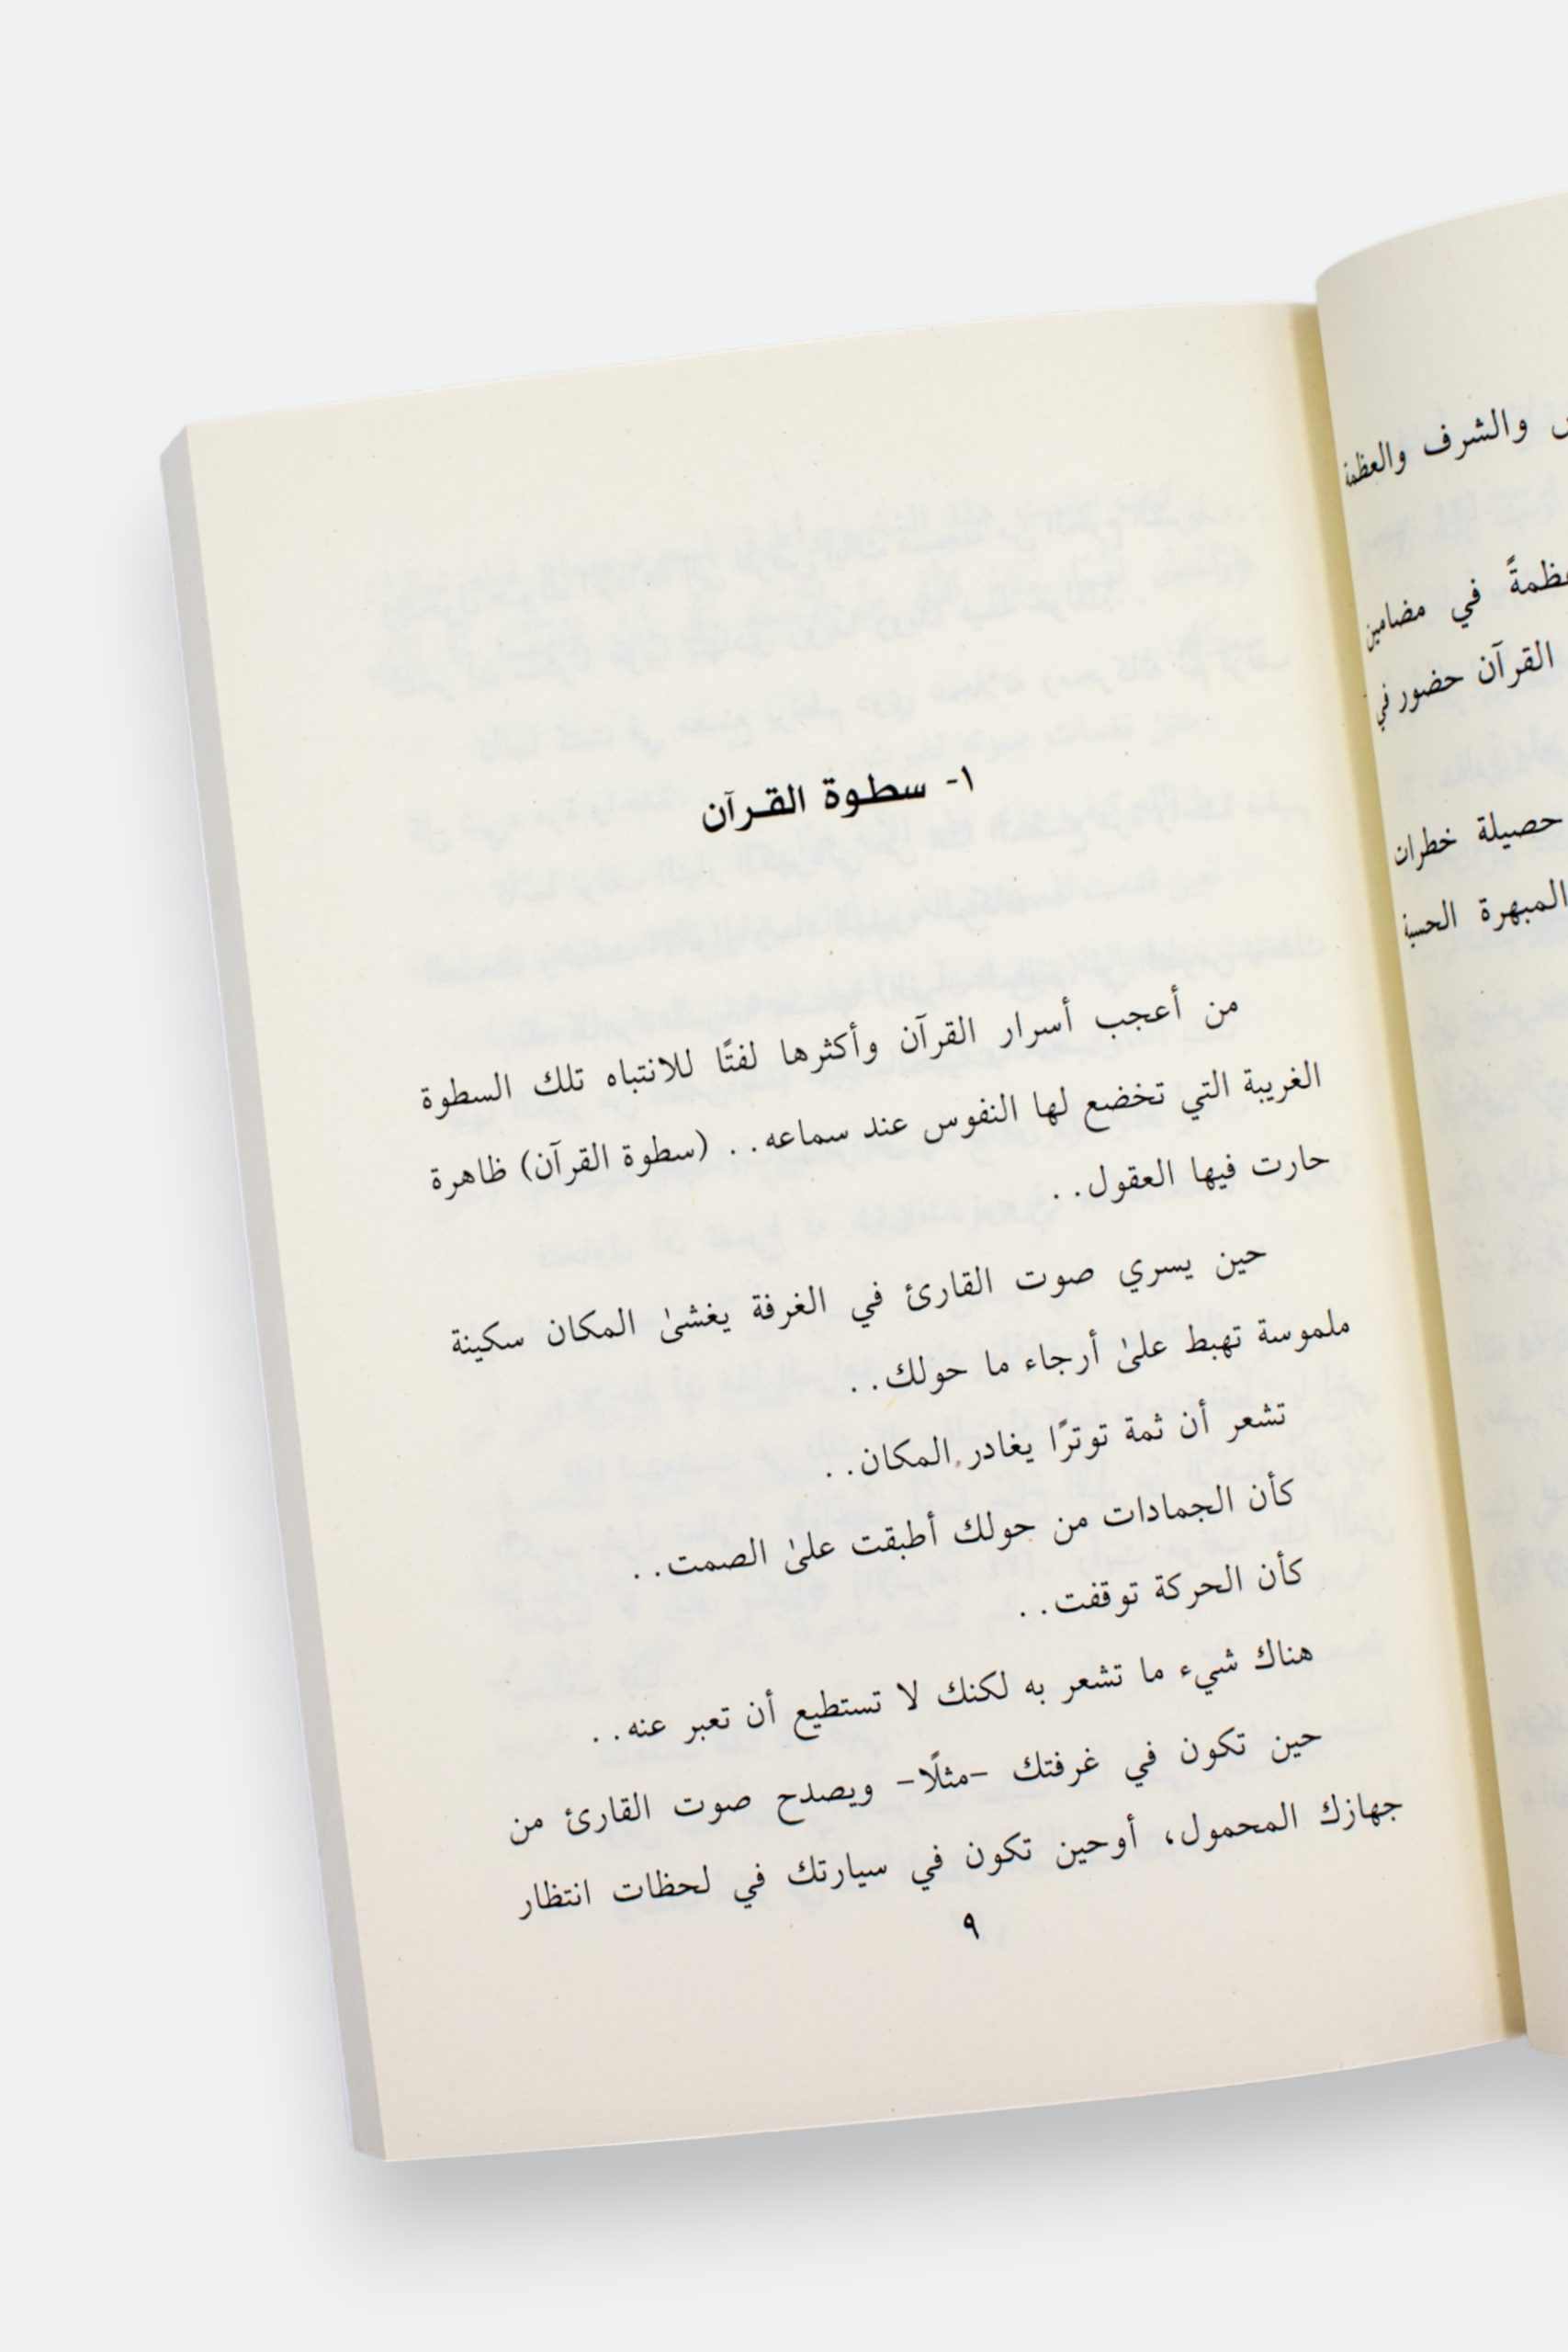 والشرف والعظمة
في مضامين
القرآن حضور في
حصيلة خطرات
المبهرة الحسية
١- سطوة القرآن
من أعجب أسرار القرآن وأكثرها لفتًا للانتباه تلك السطوة
الغريبة التي تخضع لها النفوس عند سماعه.. (سطوة القرآن) ظاهرة
حارت فيها العقول..
حين يسري صوت القارئ في الغرفة يغشىٰ المكان سكينة
ملموسة تهبط علىٰ أرجاء ما حولك..
تشعر أن ثمة توترًا يغادر المكان..
كأن الجمادات من حولك أطبقت علىٰ الصمت..
كأن الحركة توقفت..
هناك شيء ما تشعر به لكنك لا تستطيع أن تعبر عنه..
حين تكون في غرفتك -مثلًا- ويصدح صوت القارئ من
جهازك المحمول، أوحين تكون في سيارتك في لحظات انتظار
٩